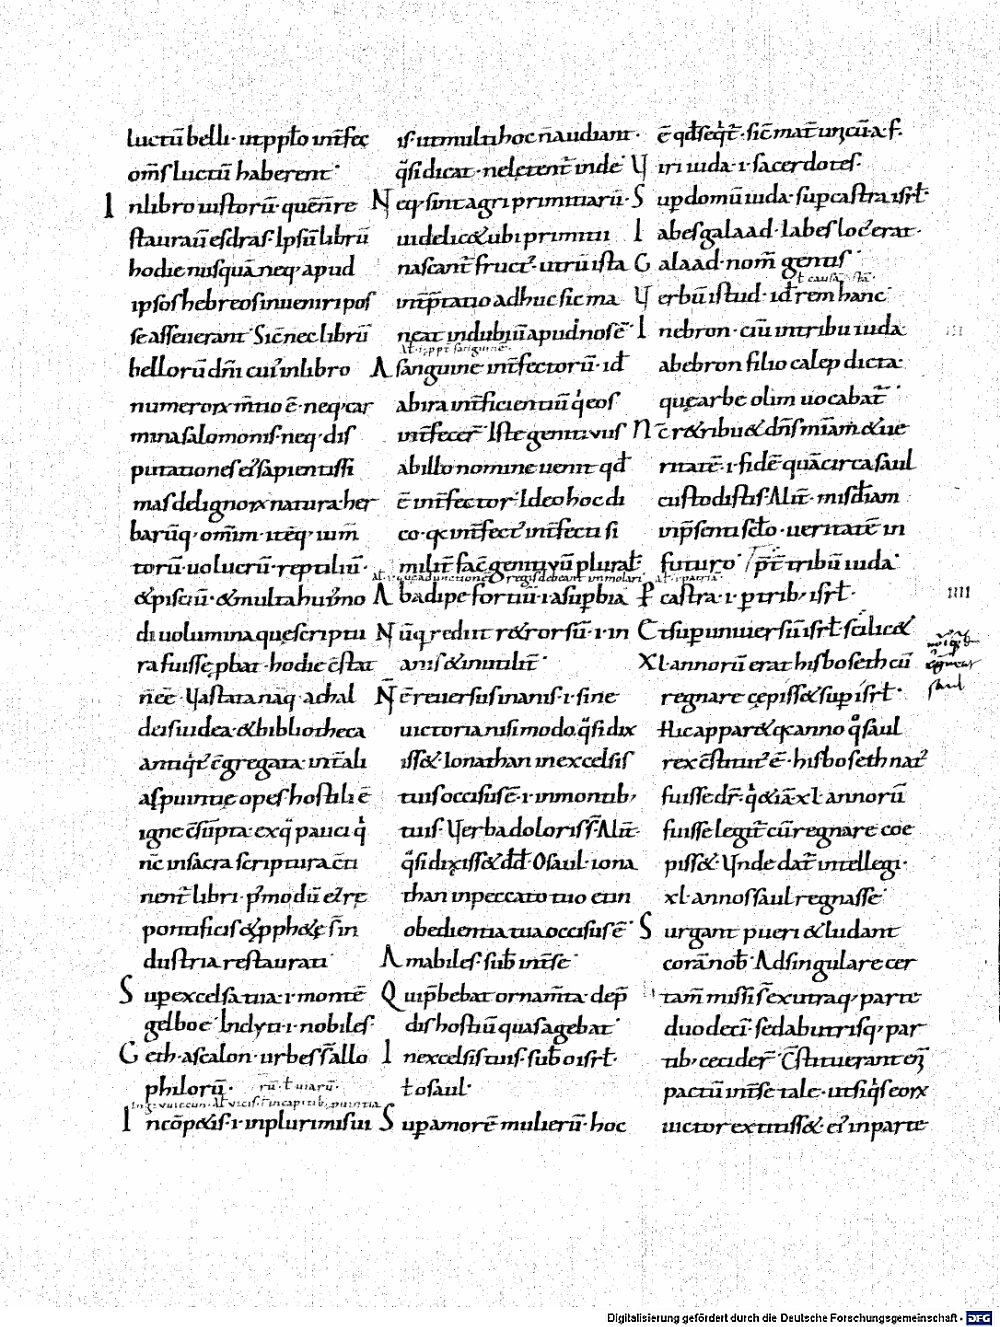 luctū belli· ut pplo intfec
om̄s luctū haberent·
In libro iustorū· quēnre
stauraū esdras· Ipsū librū
hodie nusquā neq· apud
ipsos hebreos inueniri pos
se asseuerant· Sic nec librū
bellorū dn̄i cui' in libro
numerorꝝ m̄tio ē· neq· car
mina salomonis· neq· dis
putationes ei' sapientissi
mas de lignorꝝ natura her
barūq· om̄im· itēq· ium̄
torū· uolucrū· reptiliū·
& pisciū· & multa hui'mo
di uolumina quę scriptu
ra fuisse pbat· hodie c̄stat
n̄ eē· Vastata nāq· a chal
deis iudea· & bibliotheca
antiqt' c̄gregata int̄ ali
as puintię opes hostili ē
igne c̄sūpta· ex q̄ pauci q̇
nc̄ in sacra scriptura c̄ti
nent̄ libri· p'modū ei' rę
pontificis & pphetę s̄ in
dustria restaurati·
Sup excelsa tua· i· montē
gelboe· Inclyti· i· nobiles·
Geth· ascalon· urbes s̄ allo
philorū·
rū· ł uiarū·
In cōpetis· i· in plurimis ui
is· ut multi hoc n̄ audiant·
q̄si dicat· ne letent̄ inde·
Neq· sint agri primitiarū·
uidelicet ubi primitii
nascant̄ fruct'· utrū ista
int̄ptatio ad huc sic ma
neat in dubiū apud nos ē·
A sanguine int̄fectorū· id
ab ira int̄ficientiū q̇ eos
int̄fecer̄· Iste genitiuus
ab illo nomine uenit qd
ē int̄fector· Ideo hoc di
co· qꝫ int̄fect' int̄fecti si
milit̄ fac̄ genitiuū plural̄·
A badipe fortiū· i a supbia
Nūq· rediit retrorsū· i· in
anis & inutilit̄·
N̄ ē reuersus inanis· i· sine
uictoria nisi modo· q̄si dix
iss&· Ionathan in excelsis
tuis occisus ē· i· in montib;
tuis· Verba doloris s̄· Alit̄·
q̄si dixiss& dd· O saul· iona
than in peccato tuo et in
obedientia tua occisus ē·
Amabiles· sub int̄se·
Qui p̄bebat ornam̄ta· de p̄
dis hostiū quas agebat·
In excelsis tuis· sub o isrl·
ł o saul·
Sup amorē mulierū· hoc
ē qd seqt̄· sic mat̄ unicū a· f·
Viri iuda· i· sacerdotes·
Sup domū iuda· sup castra isrl·
Iabes galaad· Iabes loc' erat·
Galaad· nom̄ genus·
ł causā· stā·
Verbū istud· id rem hanc·
In ebron· ciū in tribu iuda·
ab ebron filio calep dicta·
quę arbe olim uocabat̄·
Nc̄ retribuet dn̄s m̄iam & ue
ritatē· i· fidē quā circa saul
custodistis· Alit̄· misdiam
in p̄senti sclo· ueritatē in
futuro· p̄t tribū iuda·
P castra· i· p tribꝫ isrl·
Et sup uniuersū isrl· scilicet
XL annorū erat hisboseth cū
regnare cępiss& sup isrl·
Hic apparet qꝫ anno q̊ saul
rex c̄stitut' ē· hisboseth nat'
fuisse dr̄· q̇ & iā XL annorū
fuisse legit̄ cū regnare coe
piss&· Vnde dat̄ intellegi·
xl· annos saul regnasse·
Surgant pueri & ludant
corā nob· Ad singulare cer
tam̄ missi s̄ ex utraq· parte
duodeci· sed ab utrisq· par
tib; cecider̄· C̄stituerant eni
pactū int̄ se tale· ut si q̇s eorꝝ
uictor extitiss&· ei' in parte
IIII
saul
Digitalisierung gefördert durch die Deutsche Forschungsgemeinschaft - DFG